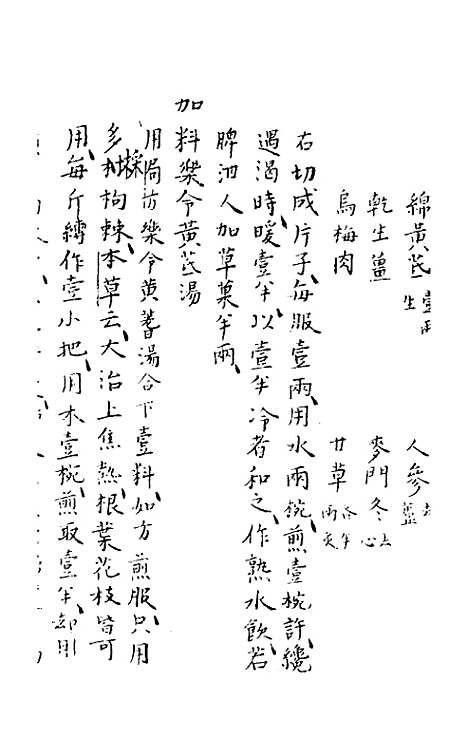 綿黃芪 壹兩生 人參 去蘆
乾生薑 麥門冬 去心
烏梅肉 甘草 各半兩炙
右切成片子每服壹兩用水兩椀煎壹椀許纔
遇渴時暖壹半以壹半冷者和之作熟水飲若
脾泄人加草菓半兩
加料樂令黃芪湯
用局方樂令黃蓍湯合下壹料如方煎服只用
多採枸棘本草云大治上焦熱根葉花枝皆可
用每斤縛作壹小把用水壹椀煎取壹半却用